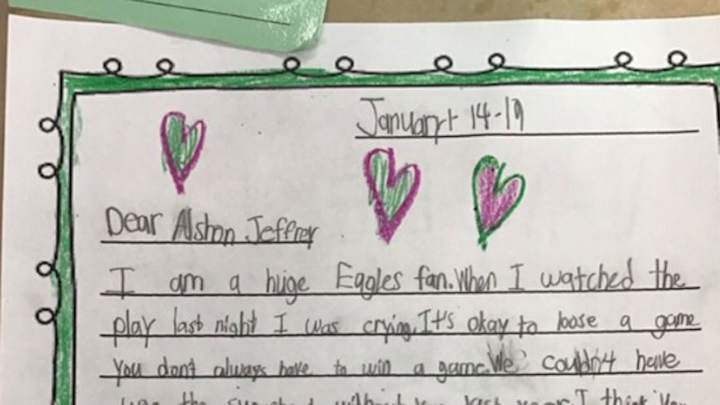 January 14-19
Dear Alshon Jeffrey
I am a huge Eagles fan. When I watched the
play last night I was crying. It's okay to loose a game
You don't always have to win a game. We couldn't have
last year. I think you